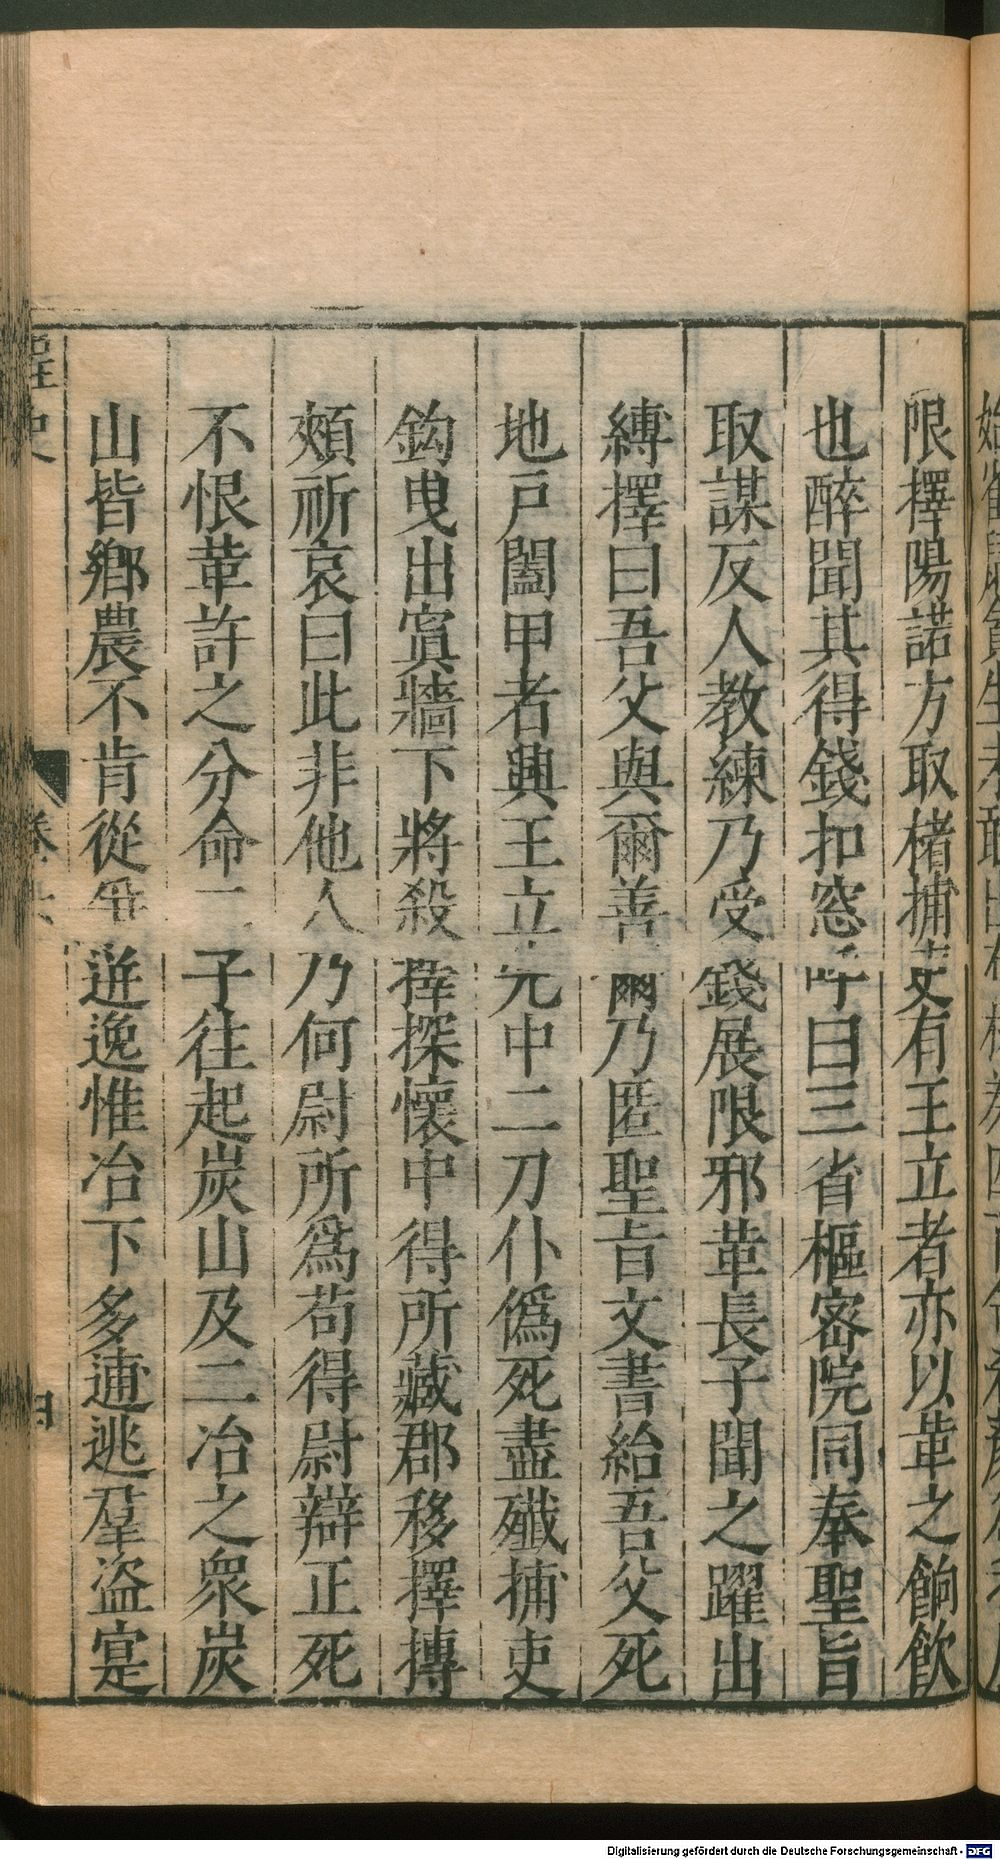 限擇陽諾方取楮捕吏有王立者亦以革之餉飲
也醉聞其得錢扣窓呼曰三省樞密院同奉聖旨
取謀反人教練乃受錢展限邪革長子聞之躍出
縛擇曰吾父與爾善爾乃匿聖旨文書紿吾父死
地戸闔甲者興王立先中二刀仆僞死盡殲捕吏
鈎曳出寘牆下將殺擇探懷中得所藏郡移擇搏
頰祈哀曰此非他人乃何尉所爲苟得尉辯正死
不恨革許之分命二子往起炭山及二冶之衆炭
山皆鄉農不肯從爭迸逸惟冶下多逋逃羣盜寔
桯史
卷六
Digitalisierung gefördert durch die Deutsche Forschungsgemeinschaft - DFG